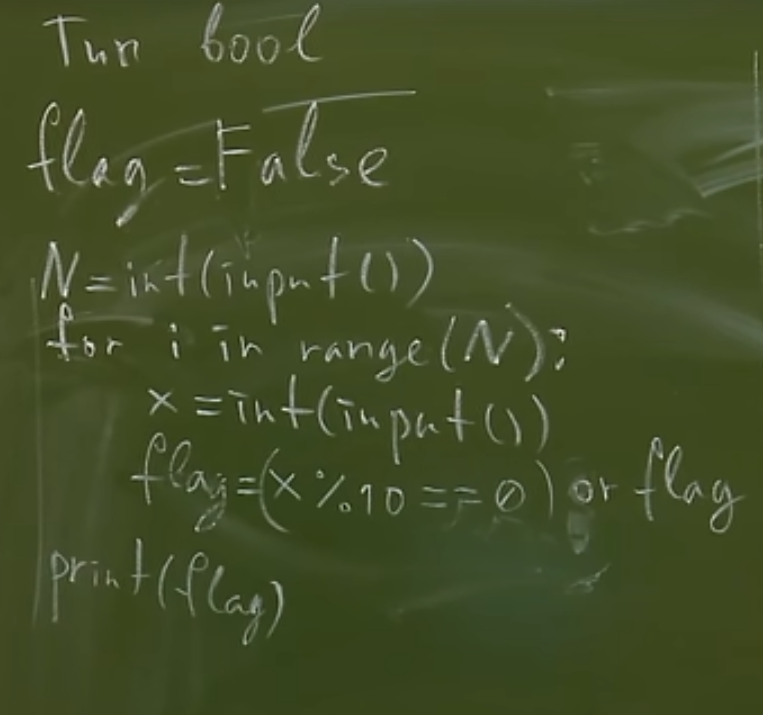 Тип bool
flag=False
N=int(input())
for i in range(N):
x=int(input())
flag=(x%10==0) or flag
print(flag)